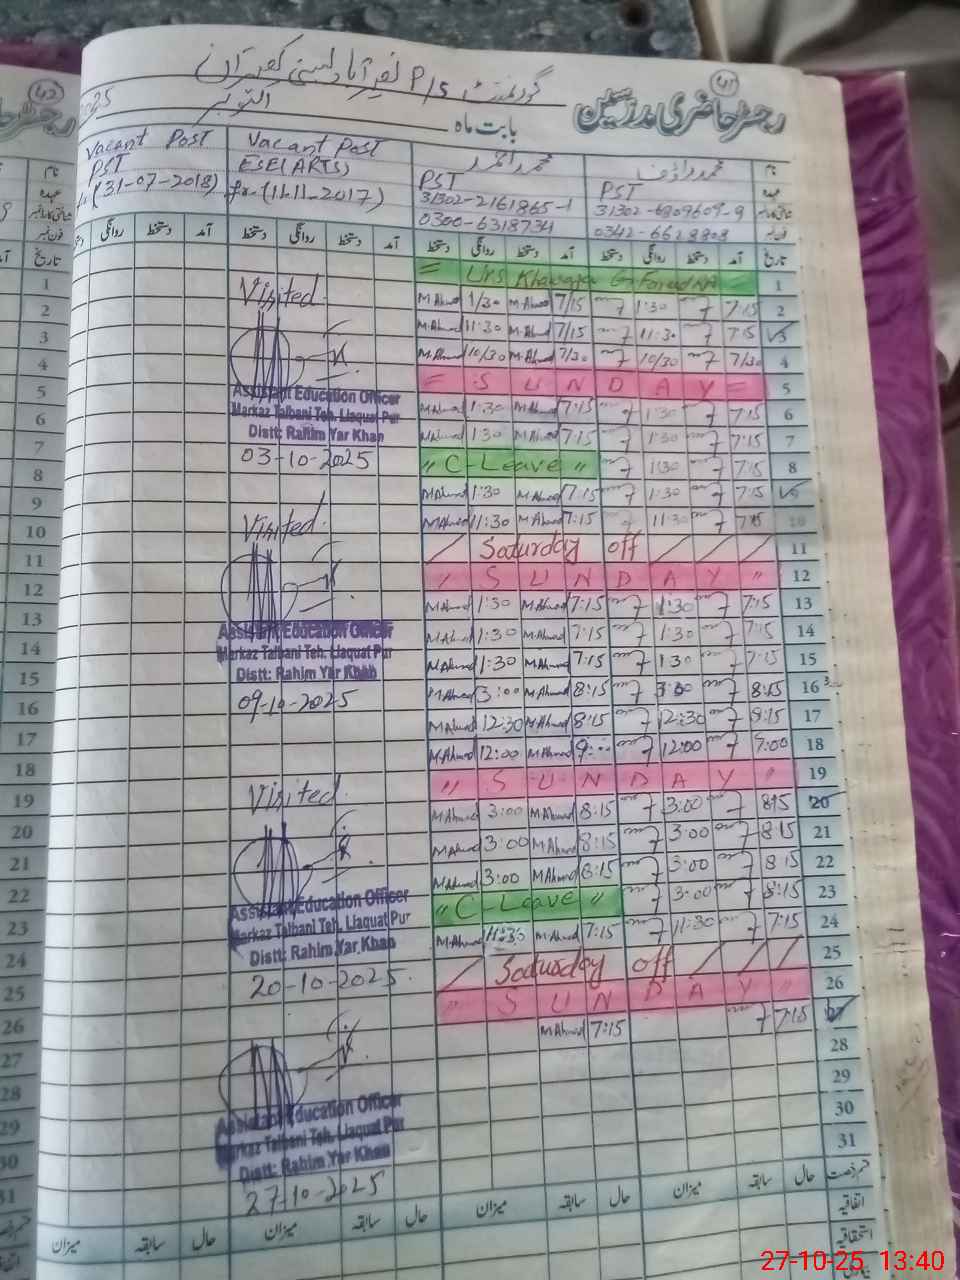 رجسٹر حاضری مدرسین
41
42
گورنمنٹ P/S
بابت ماہ اکتوبر 2025
نام
عہدہ
شناختی کارڈ نمبر
فون نمبر
تاریخ
PST
31302-6809609-9
0342-6628808
محمد احمد
PST
31302-2161865-1
0300-6318734
Vacant Post
ESE(ARTS)
fr-(11-11-2017)
Vacant Post
PST
(31-07-2018)
آمد دستخط روانگی دستخط آمد دستخط روانگی دستخط آمد دستخط روانگی دستخط آمد دستخط روانگی
1 = Urs Khawaja G Farid RA =
2 7:15 1:30 7/15 M Ahmad 1/30 M Ahmad
3 7:15 11:30 7/15 M Ahmad 11:30 M Ahmad
4 7/30 10/30 7/30 M Ahmad 10/30 M Ahmad
5 = S U N D A Y =
6 7:15 1:30 7:15 M Ahmad 1:30 M Ahmad
7 7:15 1:30 7:15 M Ahmad 1:30 M Ahmad
8 7:15 1:30 " C-Leave "
9 7:15 1:30 7:15 M Ahmad 1:30 M Ahmad
10 7:15 11:30 7:15 M Ahmad 11:30 M Ahmad
11 / Saturday off / / /
12 " S U N D A Y "
13 7:15 1:30 7:15 M Ahmad 1:30 M Ahmad
14 7:15 1:30 7:15 M Ahmad 1:30 M Ahmad
15 7:15 1:30 7:15 M Ahmad 1:30 M Ahmad
16 8:15 3:00 8:15 M Ahmad 3:00 M Ahmad
17 8:15 12:30 8:15 M Ahmad 12:30 M Ahmad
18 9:00 12:00 9:00 M Ahmad 12:00 M Ahmad
19 " S U N D A Y "
20 8:15 3:00 8:15 M Ahmad 3:00 M Ahmad
21 8:15 3:00 8:15 M Ahmad 3:00 M Ahmad
22 8:15 3:00 8:15 M Ahmad 3:00 M Ahmad
23 8:15 3:00 " C-Leave "
24 7:15 11:30 7:15 M Ahmad 11:30 M Ahmad
25 / Saturday off / / /
26 " S U N D A Y "
27 7:15 7:15 M Ahmad
28
29
30
31
Visited
Assistant Education Officer
Markaz Talbani Teh. Liaquat Pur
Distt: Rahim Yar Khan
03-10-2025
Visited
Assistant Education Officer
Markaz Talbani Teh. Liaquat Pur
Distt: Rahim Yar Khan
09-10-2025
Visited
Assistant Education Officer
Markaz Talbani Teh. Liaquat Pur
Distt: Rahim Yar Khan
20-10-2025
Assistant Education Officer
Markaz Talbani Teh. Liaquat Pur
Distt: Rahim Yar Khan
27-10-2025
قسم رخصت حال سابقہ میزان حال سابقہ میزان حال سابقہ میزان حال سابقہ میزان
اتفاقیہ
استحقاقیہ
27-10-25 13:40